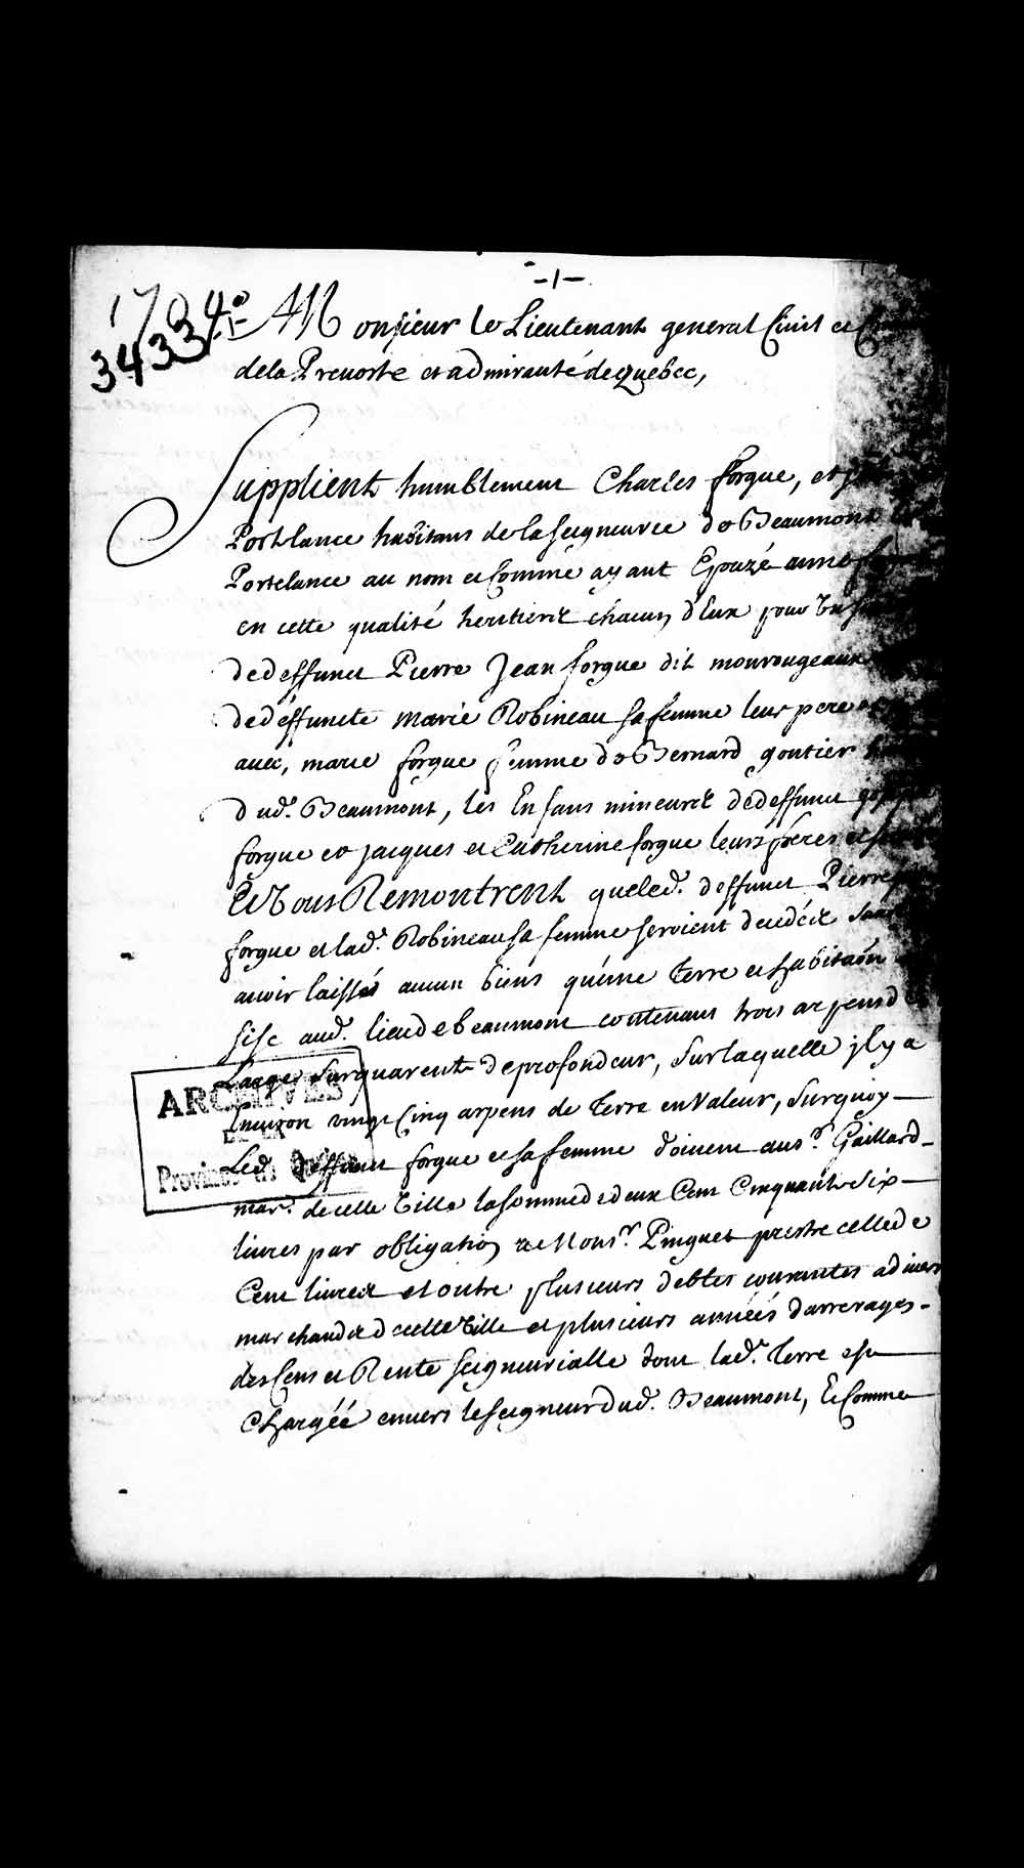 -1-
1704
3433
A Monsieur le Lieutenant general Civil et
dela Prevosté et admirauté de quebec,
Supplient humblement Charles forgue, et
Portlance habitans de la seigneurie de Beaumont
Portelance au nom et Comme ayant Epouzé anne
en cette qualité heritiers chacun d'Eux pour
de deffunct Pierre Jean forgue dit monrougeaux
de deffuncte marie Robineau sa femme leur pere
avec, marie forgue femme de Bernard gontier
dud. Beaumont, les Enfans mineurs de deffunct
forgue et jacques et Catherine forgue leurs freres et
Et Vous Remontrent que led. deffunct Pierre
forgue et lad. Robineau sa femme seroient decedéz sans
avoir laissés aucun biens qu'une Terre et habitaon
size aud. lieu de beaumont contenant trois arpens de
Large sur quarente de profondeur, Sur laquelle jl y a
Environ vingt Cinq arpens de Terre en valeur, Surquoy
Led. deffunct forgue et sa femme doivent au sr. Gaillard
mard. de cette Ville la somme de deux Cent Cinquante Six
livres par obligation et Monsr. Pinguet prestre celle de
Cent livres et outre plusieurs debtes courantes a divers
marchands de cette Ville et plusieurs années d'arrerages
des Cens et Rente seigneurialle dont lad. Terre est
Chargéé envers le seigneur dud. Beaumont, Et Comme
ARCHIVES
DE LA
Province de Québec